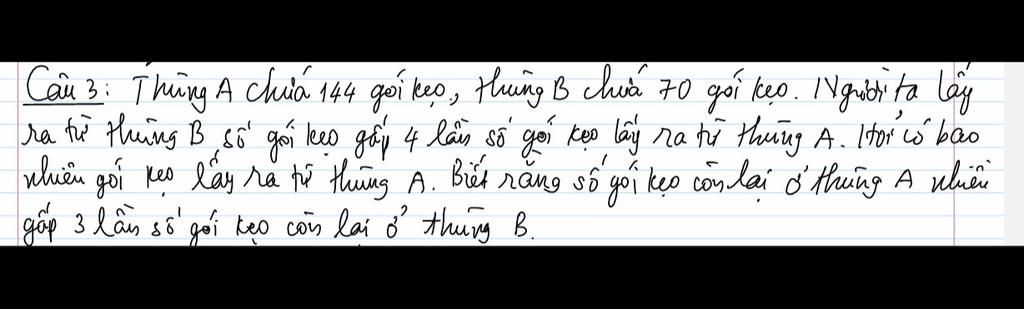 Câu 3: Thùng A chứa 144 gói kẹo, thùng B chứa 70 gói kẹo. Người ta lấy
ra từ thùng B số gói kẹo gấp 4 lần số gói kẹo lấy ra từ thùng A. Hỏi có bao
nhiêu gói kẹo lấy ra từ thùng A. Biết rằng số gói kẹo còn lại ở thùng A nhiều
gấp 3 lần số gói kẹo còn lại ở thùng B.